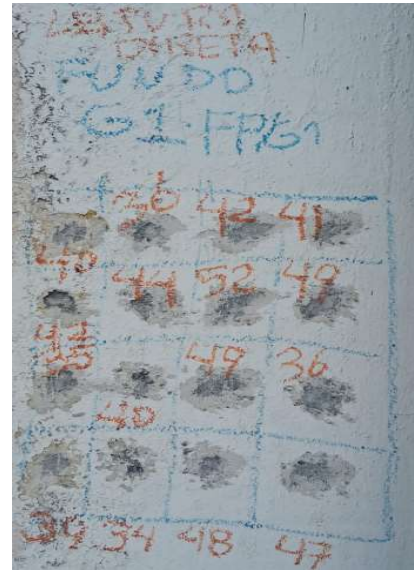 LEITURA
DIRETA
FUNDO
G1-FP/G1
36 42 41
40 44 52 49
49 36
40
34 48 47